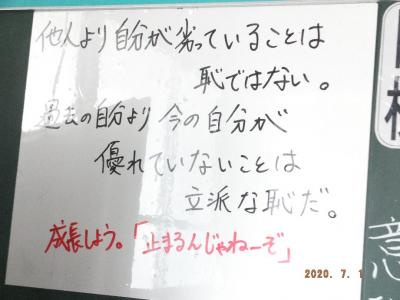 他人より自分が劣っていることは
恥ではない。
過去の自分より今の自分が
優れていないことは
立派な恥だ。
成長しよう。「止まるんじゃねーぞ」
2020. 7. 1
意